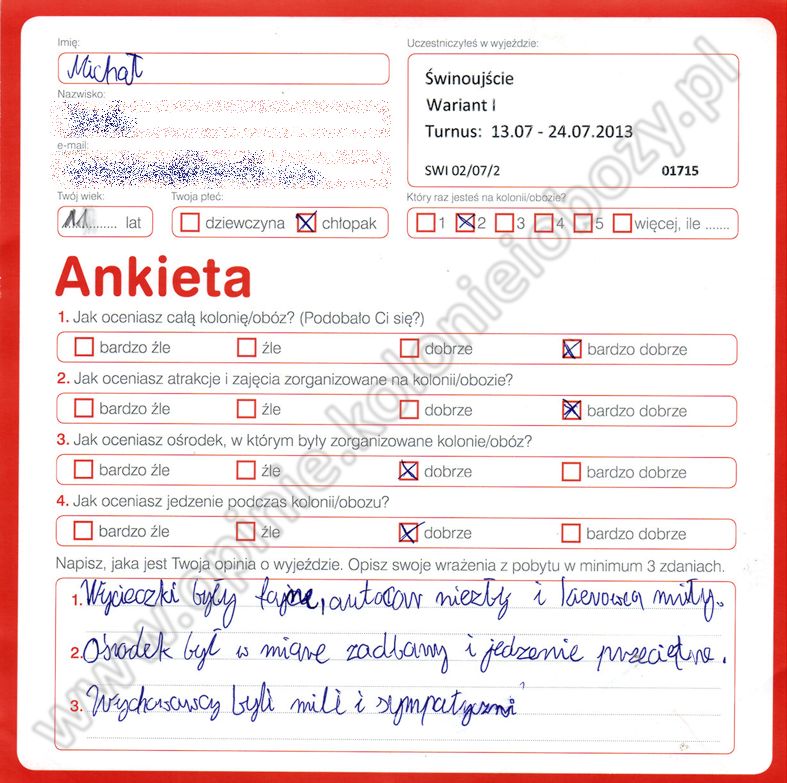 Imię:
Michał
Nazwisko:
e-mail:
Twój wiek:
11 lat
Twoja płeć:
dziewczyna chłopak
Uczestniczyłeś w wyjeździe:
Świnoujście
Wariant I
Turnus: 13.07 - 24.07.2013
SWI 02/07/2 01715
Który raz jesteś na kolonii/obozie?
1 2 3 4 5 więcej, ile .......
Ankieta
1. Jak oceniasz całą kolonię/obóz? (Podobało Ci się?)
bardzo źle źle dobrze bardzo dobrze
2. Jak oceniasz atrakcje i zajęcia zorganizowane na kolonii/obozie?
bardzo źle źle dobrze bardzo dobrze
3. Jak oceniasz ośrodek, w którym były zorganizowane kolonie/obóz?
bardzo źle źle dobrze bardzo dobrze
4. Jak oceniasz jedzenie podczas kolonii/obozu?
bardzo źle źle dobrze bardzo dobrze
Napisz, jaka jest Twoja opinia o wyjeździe. Opisz swoje wrażenia z pobytu w minimum 3 zdaniach.
1. Wycieczki były fajne, autocar niezły i kierowca miły.
2. Ośrodek był w miarę zadbany i jedzenie przeciętne.
3. Wychowawcy byli mili i sympatyczni
www.opinie.kolonieiobozy.pl